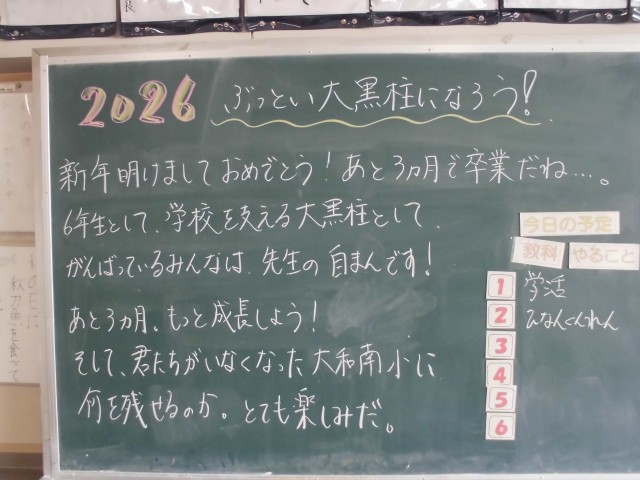 2026 ぶっとい大黒柱になろう!
新年明けましておめでとう!あと3ヵ月で卒業だね…。
6年生として、学校を支える大黒柱として、
がんばっているみんなは、先生の自まんです!
あと3ヵ月、もっと成長しよう!
そして、君たちがいなくなった大和南小に
何を残せるのか。とても楽しみだ。
今日の予定
教科 やること
1 学活
2 ひなんくんれん
3
4
5
6
秋刀魚を食べて